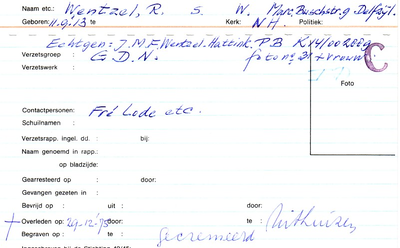 Naam etc.: Wentzel, R. S. W. Marc. Busschstr. 9 Delfzijl.
Geboren: 11.9.'13 te Kerk: N.H. Politiek:
Echtgen: J.M.F. Wentzel-Hattink. P.B K14/002009
Verzetsgroep : G.D.N. foto no. 31 + vrouw C
Verzetswerk :
Foto
Contactpersonen: Fré Lode etc.
Schuilnamen :
Verzetsrapp. ingel. dd. : bij:
Naam genoemd in rapp.:
op bladzijde:
Gearresteerd op : door:
Gevangen gezeten in :
Bevrijd op : uit : door:
Overleden op : 29-12-'75 door: te: Uithuizen
Begraven op : te : gecremeerd